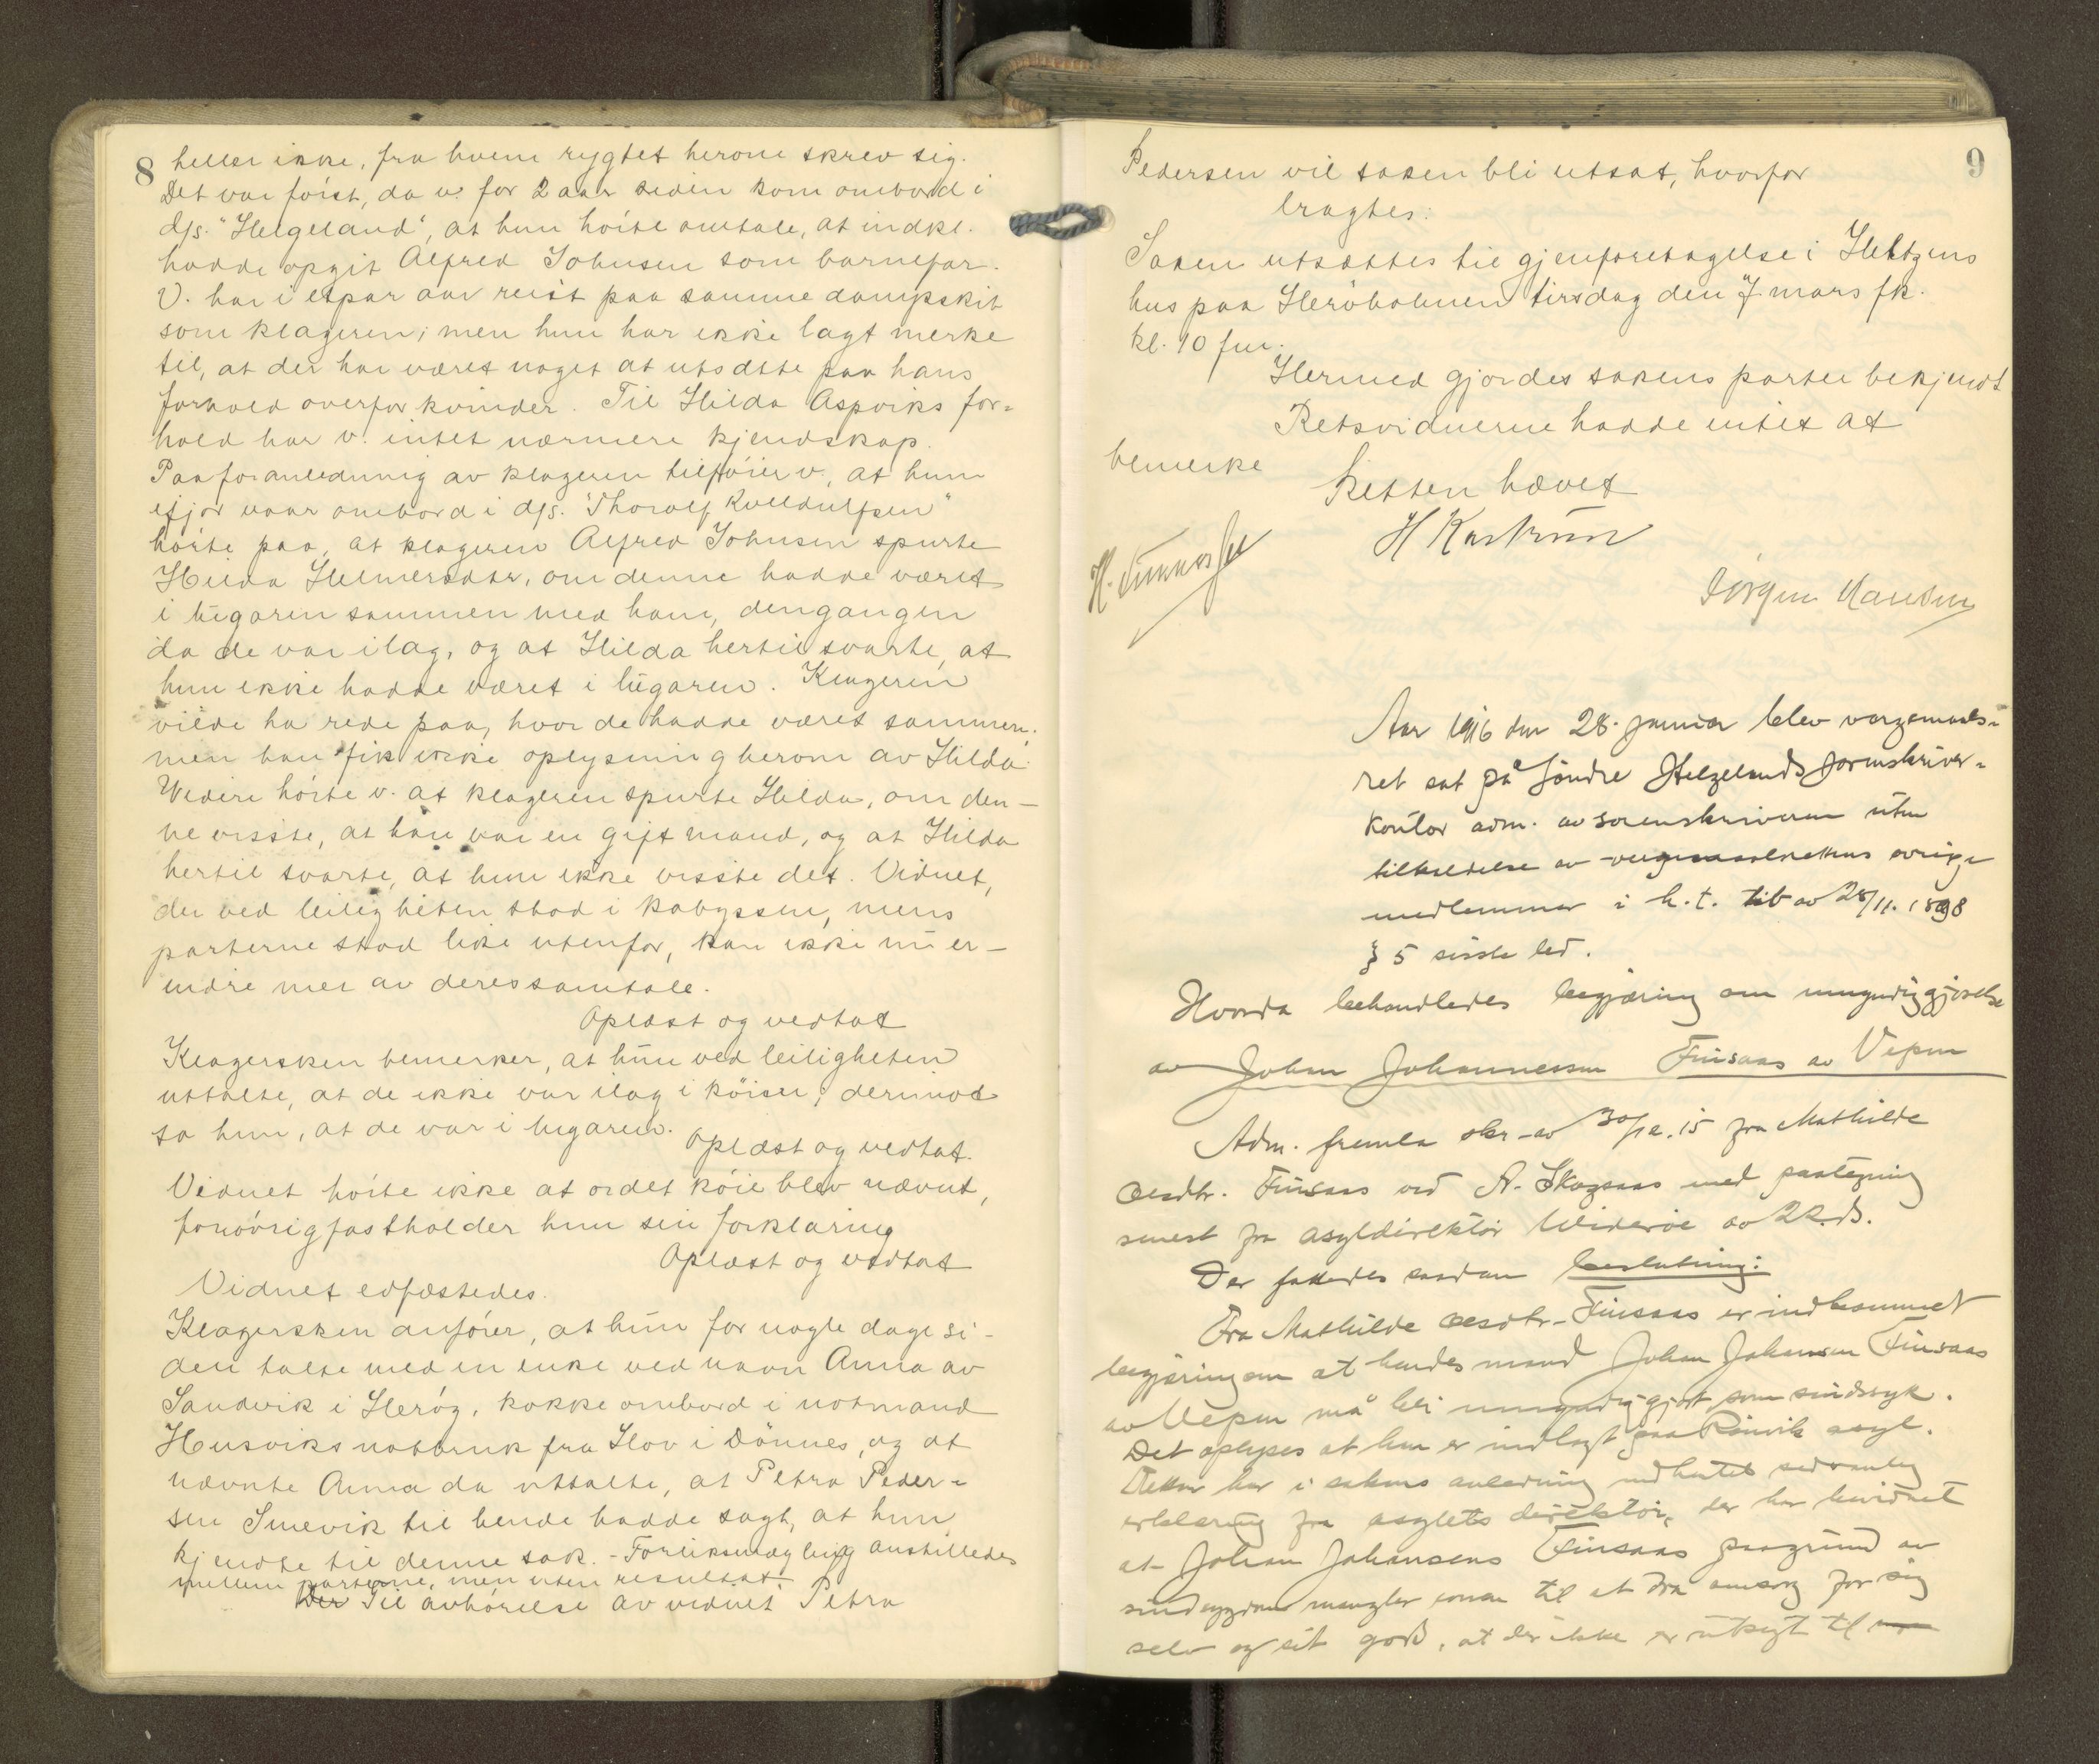 8
heller ikke, fra hvem rygtet herom skrev sig.
Det var först, da v. for 2 aar siden kom ombord i
d/s. "Helgeland", at hun hörte omtale, at indkl.
hadde opgit Alfred Johnsen som barnefar.
V. har i etpar aar reist paa samme dampskib
som klageren; men hun har ikke lagt merke
til, at der har været noget at utsætte paa hans
forhold overfor kvinder. Til Hilda Aspviks for=
hold har v. intet nærmere kjendskap.
Paa foranledning av klageren tilföier v., at hun
ifjor vaar ombord i d/s. "Thorolf Kveldulfsen"
hörte paa, at klageren Alfred Johnsen spurte
Hilda Helmersdtr, om denne hadde været
i lugaren sammen med ham, dengangen
da de var ilag, og at Hilda hertil svarte, at
hun ikke hadde været i lugaren. Klageren
vilde ha rede paa, hvor de hadde været sammen,
men han fik ikke oplysning herom av Hilda.
Videre hörte v. at klageren spurte Hilda, om den-
ne visste, at han var en gift mand, og at Hilda
hertil svarte, at hun ikke visste det. Vidnet,
der ved leiligheten stod i kabyssen, mens
parterne stod like utenfor, kan ikke nu er-
indre mer av deres samtale.
Oplæst og vedtat
Klagersken bemerker, at hun ved leiligheten
uttalte, at de ikke var ilag i köien; derimod
sa hun, at de var i lugaren.
Oplæst og vedtat.
Vidnet hörte ikke at ordet köie blev nævnt,
forövrig fastholder hun sin forklaring
Oplæst og vedtat
Vidnet edfæstedes.
Klagersken anförer, at hun for nogle dage si-
den talte med en enke ved navn Anna av
Sandvik i Heröy, kokke ombord i notmand
Husviks notbruk fra Hov i Dönnes, og at
nævnte Anna da uttalte, at Petra Peder=
sen Snevik til hende hadde sagt, at hun
kjendte til denne sak. - Forliksmægling anstilledes
mellem parterne, men uten resultat.
Der Til avhörelse av vidnet Petra
9
Pedersen vil saken bli utsat, hvorfor
bragtes:
Saken utsættes til gjenforetagelse i Heltzens
hus paa Heröholmen tirsdag den 7. mars fk.
kl. 10 fm.
Hermed gjordes sakens parter bekjendt
Retsvidnerne hadde intet at
bemerke
Retten hævet
Jörgen Hansen
Aar 1916 den 28. januar blev vergemaals-
ret sat på Söndre Helgelands sorenskriver-
kontor adm. av sorenskriveren uten
tilkaldelse av vergemaalsrettens övrige
medlemmer i h.t. lov av 28/11. 1898
§ 5 sisste led.
Hvorda behandledes begjæring om umyndiggjörelse
av Johan Johannessen Finsaas av Vefsn
Adm. fremla skr. av 30/12. 15 fra Mathilde
Olesdtr. Finsaas ved A. Skogsaas med paategning
senest fra asyldirektör Wideröe av 22. ds.
Der fattedes saadan beslutning:
Fra Mathilde Olesdtr. Finsaas er indkommet
begjæring om at hendes mand Johan Johansen Finsaas
av Vefsn må bli umyndiggjort som sindssyk.
Det oplyses at han er indlagt paa Rönvik asyl.
Retten har i sakens anledning indhentet sedvanlig
erklæring fra asylets direktör, der har bevidnet
at Johan Johansens Finsaas paagrund av
sindssygdom mangler evnen til at dra omsorg for sig
selv og sit gods, at der ikke er utsigt til